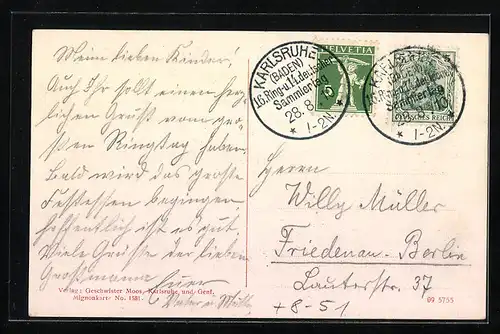 Meine lieben Kinder!
Auch Ihr sollt einen herz-
lichen Gruß vom gro-
ßen Ringtag haben.
Bald wird das große
Festessen beginnen
hoffentlich ist es gut.
Viele Grüße der lieben
Großmama
Euer
Vater u. Mutti
Verlag: Geschwister Moos, Karlsruhe und Genf.
Mignonkarte No. 1581
KARLSRUHE
(BADEN)
16. Ring- u. 14. deutscher
Sammlertag
28. 8.
* 1-2N. *
HELVETIA
5
DEUTSCHES REICH
* 1-2N. *
Herrn
Willy Müller
Friedenau-Berlin
Lauterstr. 37
+8-51
09 5755